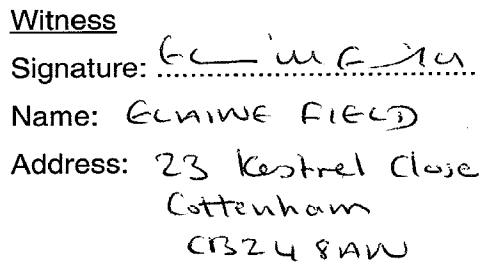 Witness
Signature: Elaine Field
Name: ELAINE FIELD
Address: 23 Kestrel Close
Cottenham
CB24 8AW